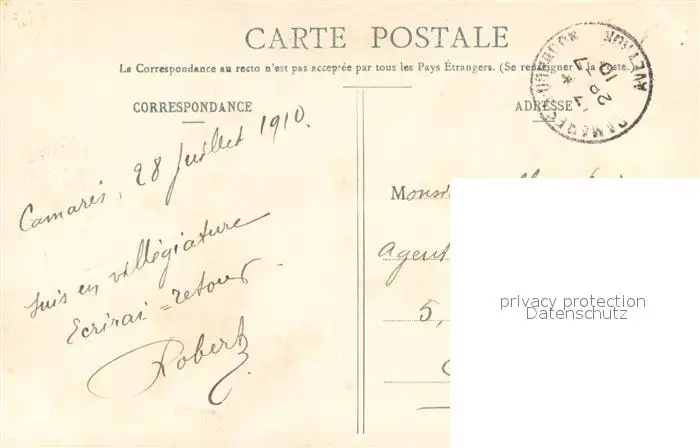 CARTE POSTALE
La Correspondance au recto n'est pas acceptée par tous les Pays Étrangers. (Se renseigner à la Poste.)
CORRESPONDANCE
ADRESSE
Camarés, 28 Juillet 1910.
Suis en villégiature
Ecrirai = retour.
Robert
Monsie
Agent
5,
privacy protection
Datenschutz
CAMARES
AVEYRON
28 -7
10